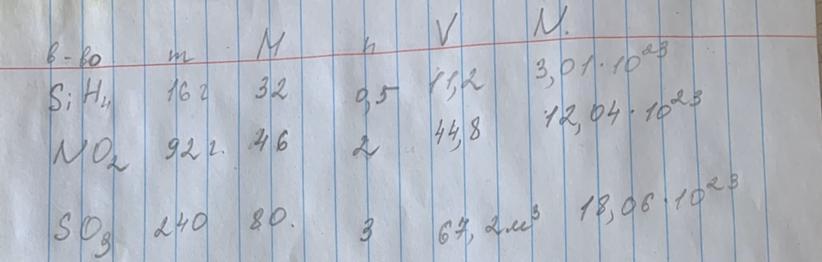 в-во m M n V N.
SiH₄ 16 г 32 0,5 11,2 3,01·10²³
NO₂ 92 г. 46 2 44,8 12,04·10²³
SO₃ 240 80. 3 67,2 м³ 18,06·10²³